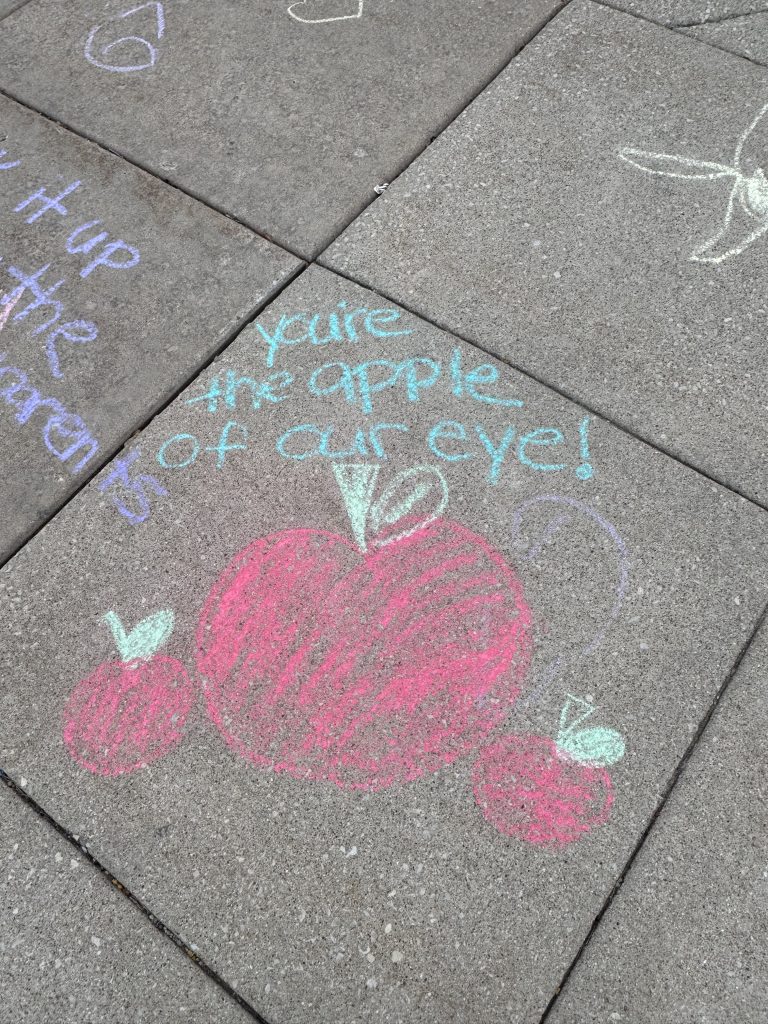 it up
the
parents
you're
the apple
of our eye!